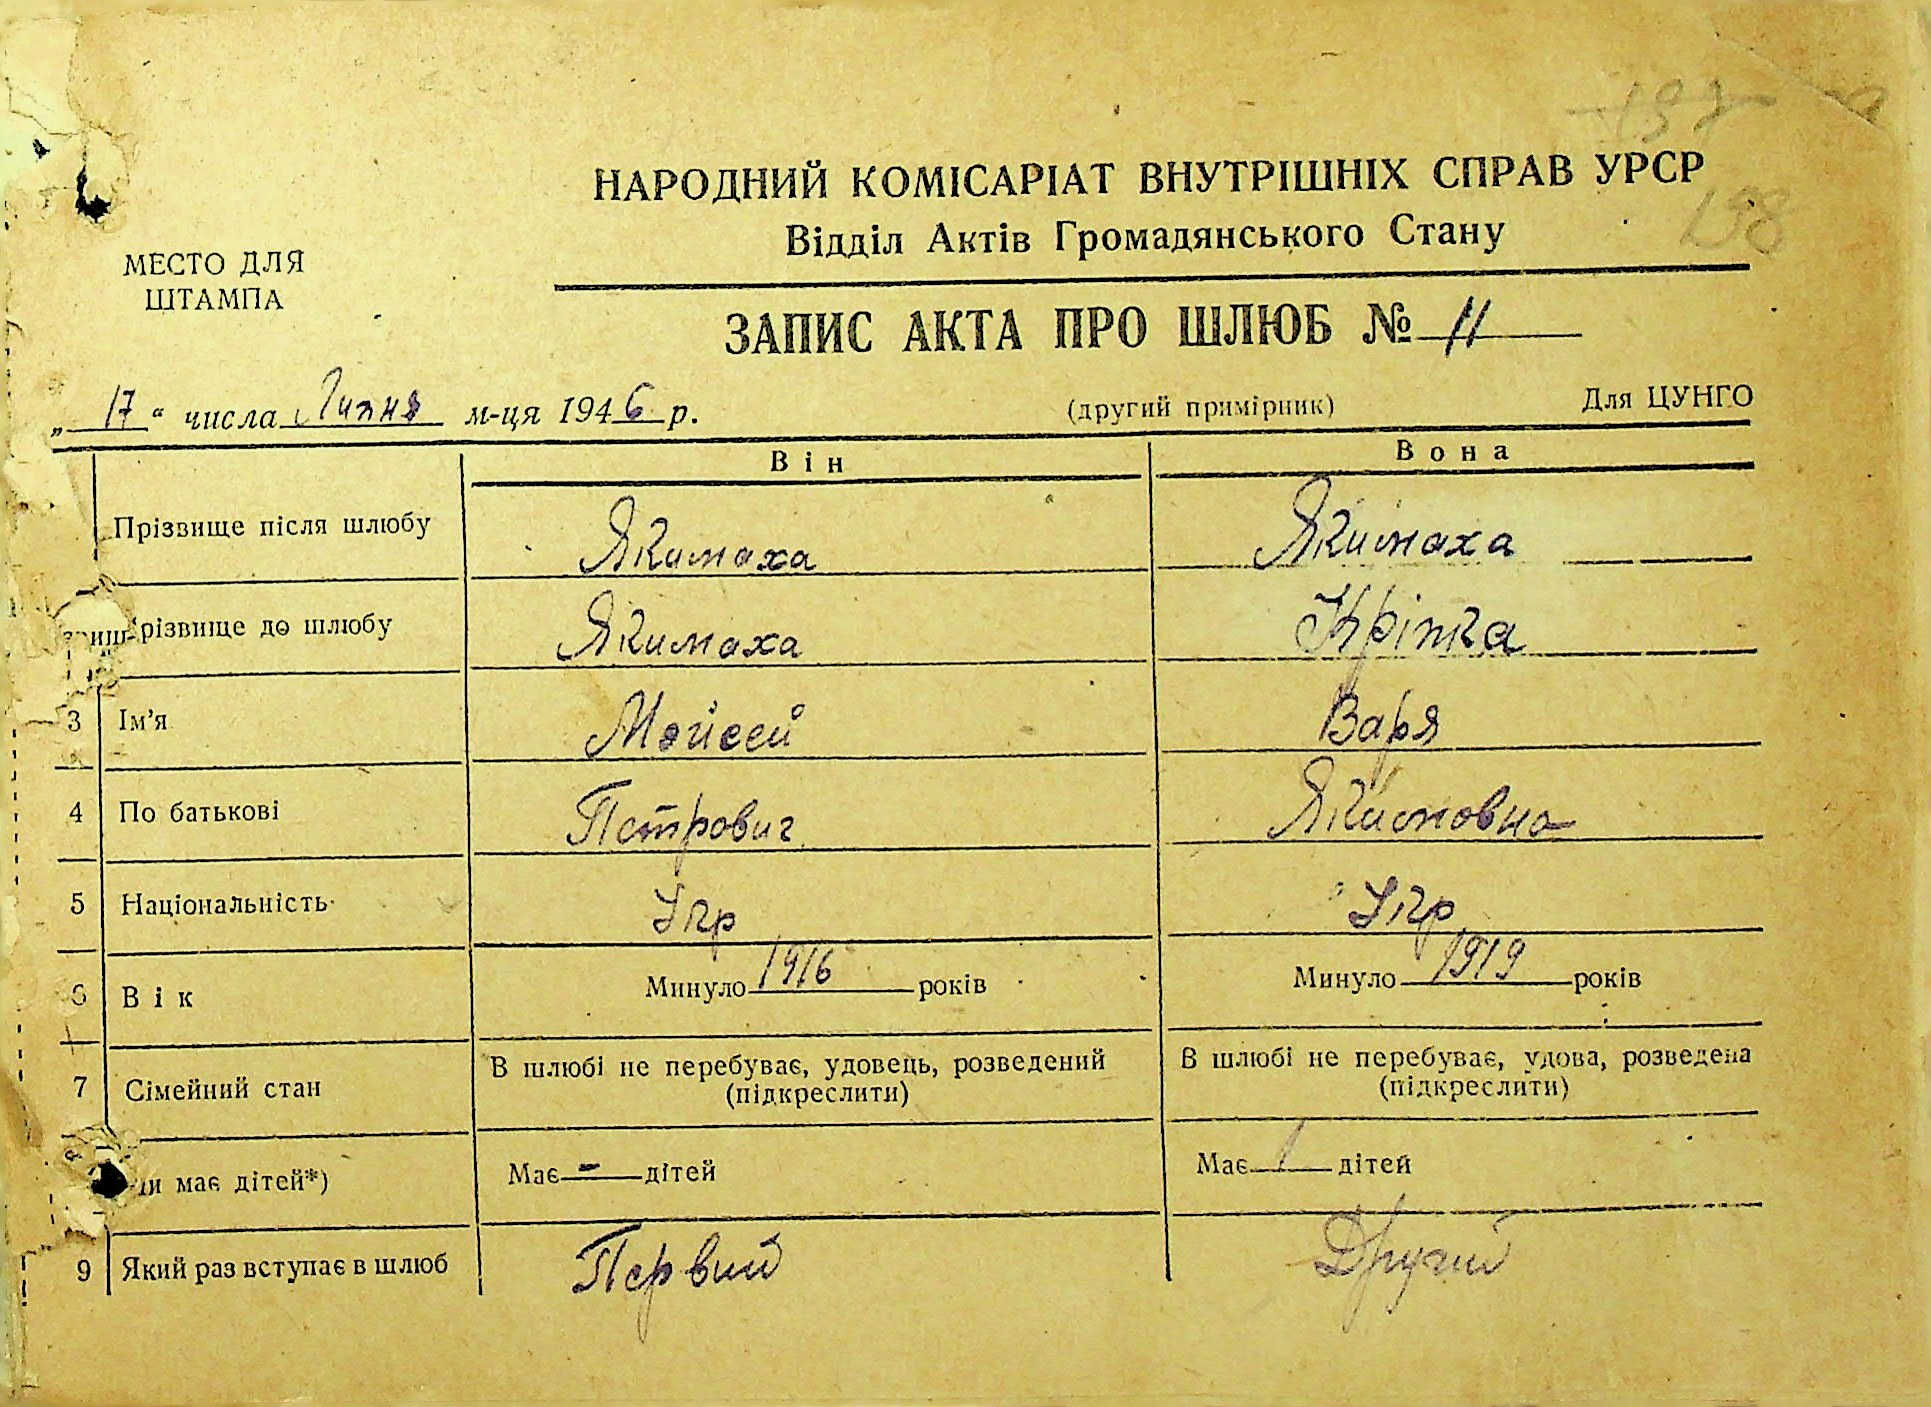 197
198
НАРОДНИЙ КОМІСАРІАТ ВНУТРІШНІХ СПРАВ УРСР
Відділ Актів Громадянського Стану
МЕСТО ДЛЯ
ШТАМПА
ЗАПИС АКТА ПРО ШЛЮБ № 11
„ 17 “ числа Липня м-ця 1946 р. (другий примірник) Для ЦУНГО
Він Вона
Прізвище після шлюбу Якимаха Якимаха
різвище до шлюбу Якимаха
3 Ім'я Мойсей Варя
4 По батькові Петрович Якимовна
5 Національність Укр Укр
6 Вік Минуло 1916 років Минуло 1919 років
7 Сімейний стан В шлюбі не перебуває, удовець, розведений (підкреслити) В шлюбі не перебуває, удова, розведена (підкреслити)
и має дітей*) Має - дітей Має 1 дітей
9 Який раз вступає в шлюб Первий Другий